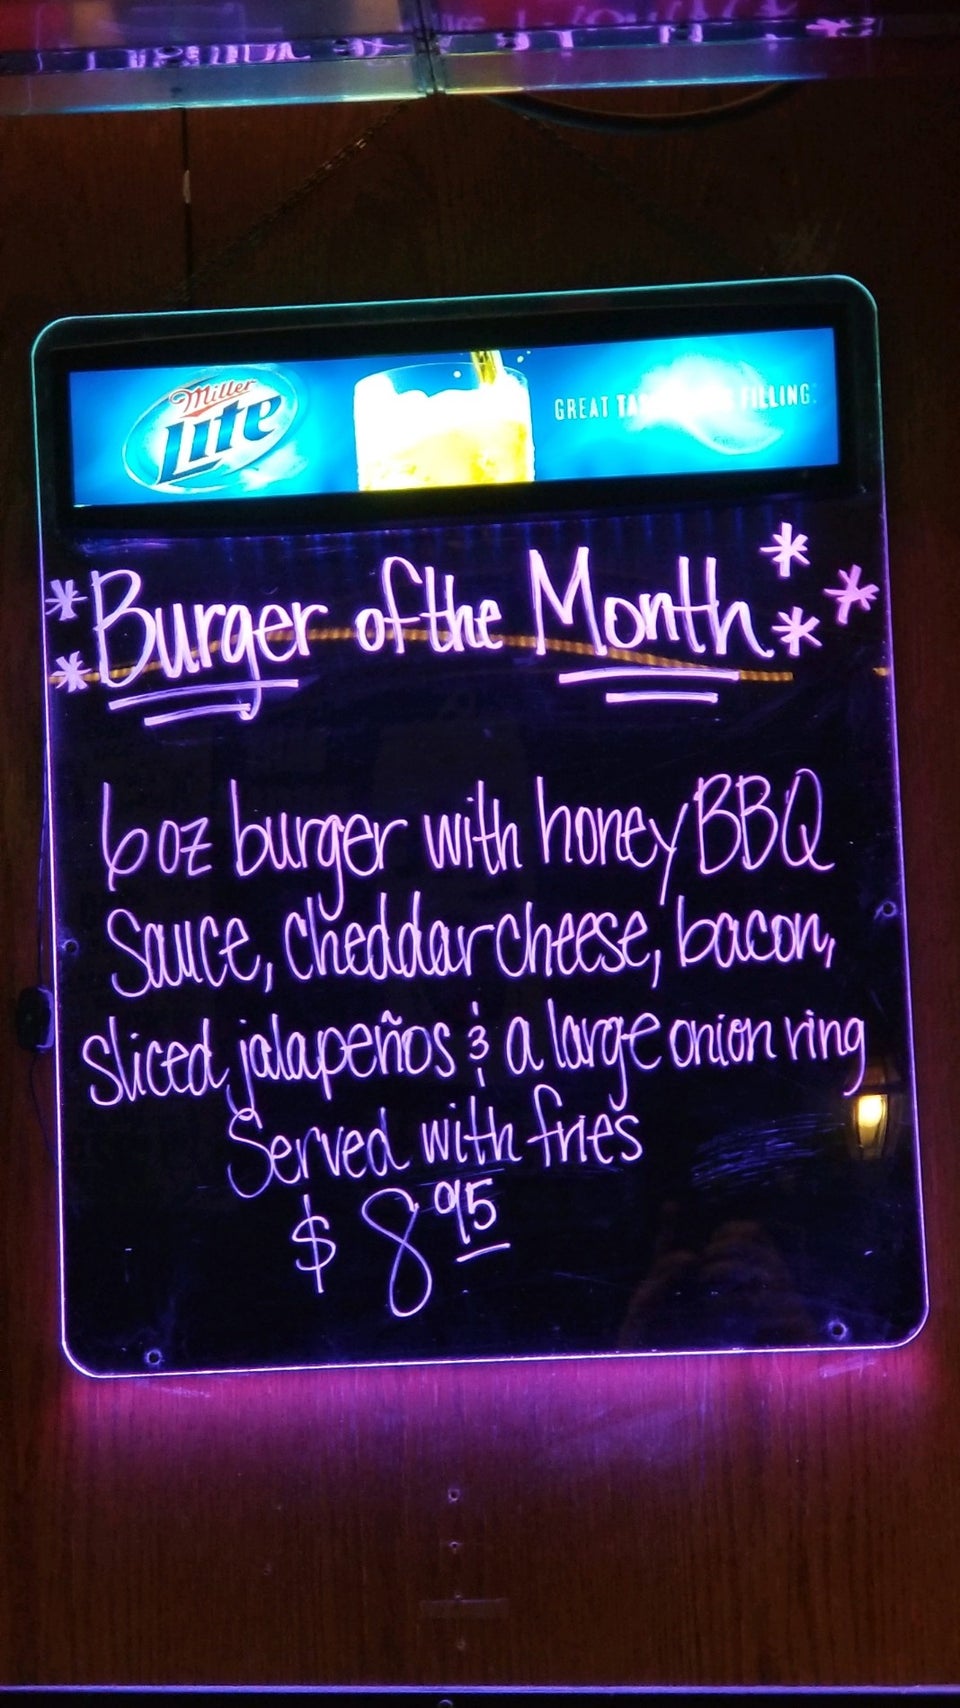 Miller
Lite
GREAT TA FILLING.
*Burger of the Month*
6 oz burger with honey BBQ
Sauce, cheddar cheese, bacon,
sliced jalapeños & a large onion ring
Served with fries
$8.95